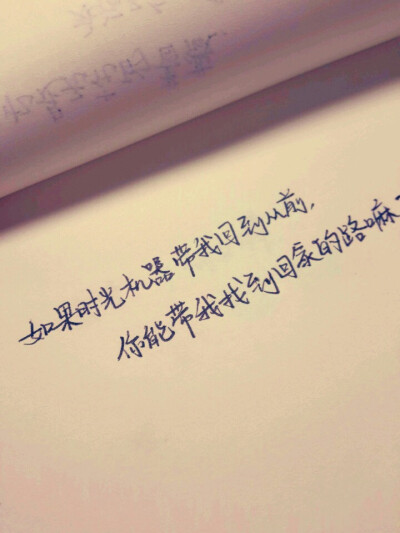 如果时光机器带我回到从前,
你能带我找到回家的路嘛?